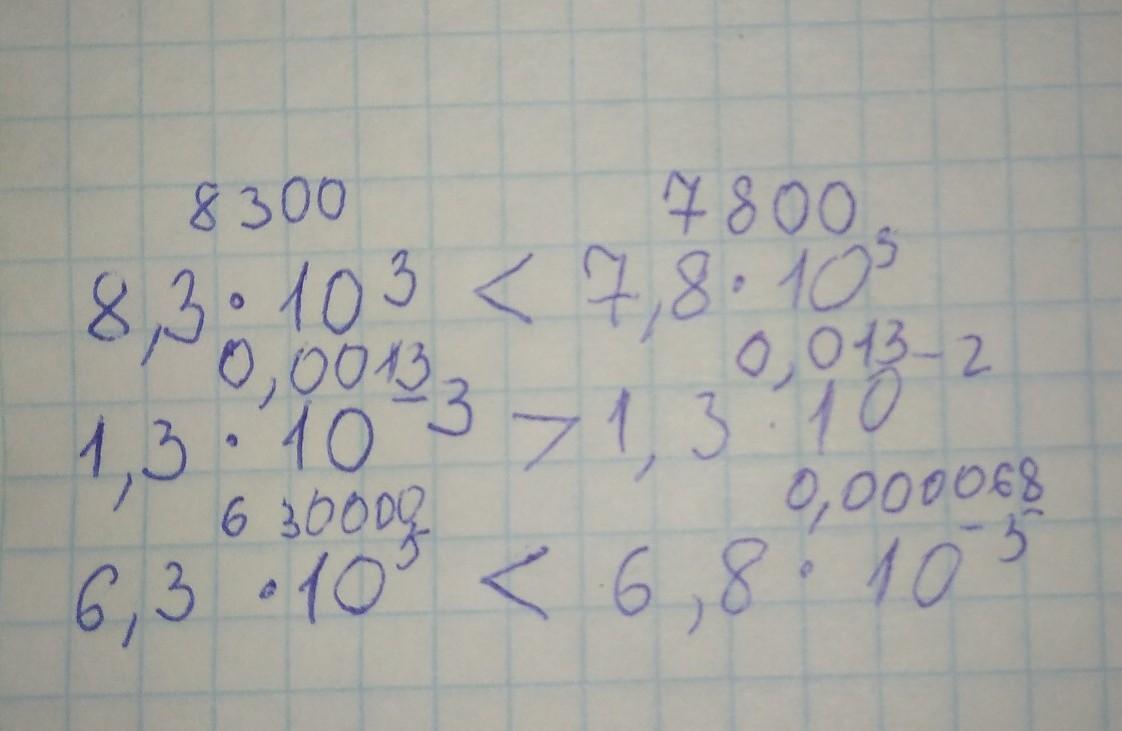 8300 7800
8,3 · 10³ < 7,8 · 10³
0,0013 0,013
1,3 · 10⁻³ > 1,3 · 10⁻²
630000 0,000068
6,3 · 10⁵ < 6,8 · 10⁻⁵